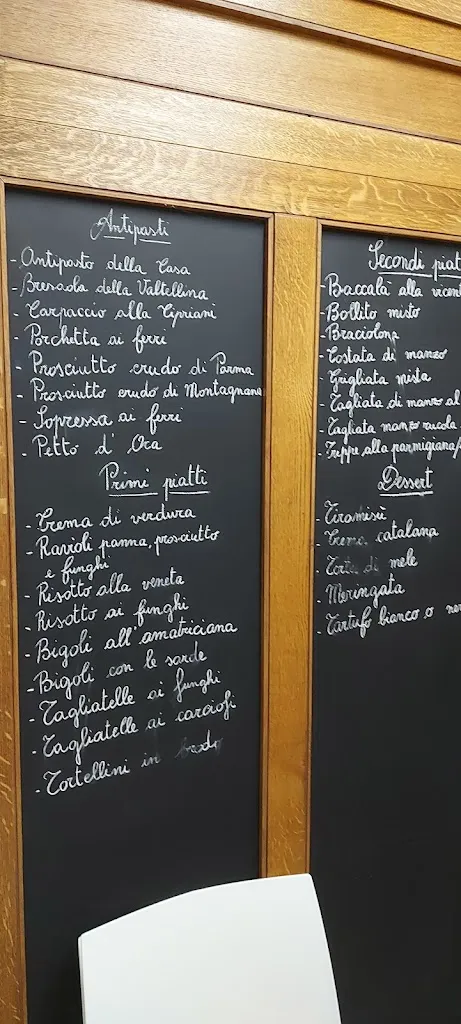 Antipasti
- Antipasto della Casa
- Bresaola della Valtellina
- Carpaccio alla Cipriani
- Porchetta ai ferri
- Prosciutto crudo di Parma
- Prosciutto crudo di Montagnana
- Sopressa ai ferri
- Petto d' Oca
Primi piatti
- Crema di verdura
- Ravioli panna, prosciutto
e funghi
- Risotto alla veneta
- Risotto ai funghi
- Bigoli all'amatriciana
- Bigoli con le sarde
- Tagliatelle ai funghi
- Tagliatelle ai carciofi
- Tortellini in brodo
Secondi piat
- Baccalà alla vicent
- Bollito misto
- Braciolona
- Costata di manzo
- Grigliata mista
- Tagliata di manzo al
- Tagliata manzo rucola
- Trippe alla parmigiana/
Dessert
- Tiramisù
- Crema catalana
- Torta di mele
- Meringata
- Tartufo bianco o ner